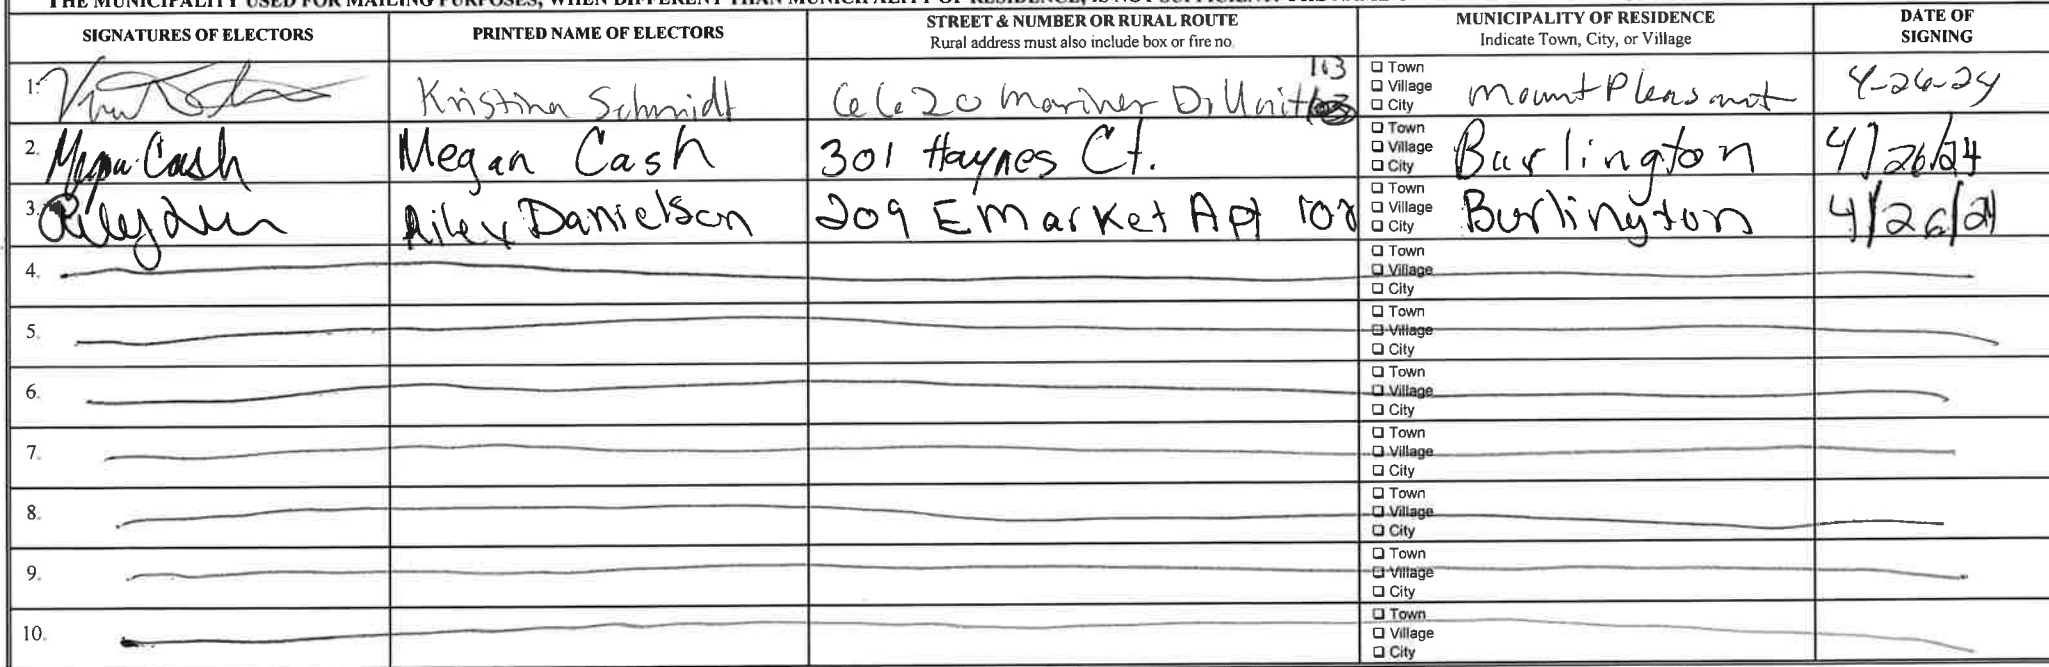 SIGNATURES OF ELECTORS
PRINTED NAME OF ELECTORS
STREET & NUMBER OR RURAL ROUTE
Rural address must also include box or fire no.
MUNICIPALITY OF RESIDENCE
Indicate Town, City, or Village
DATE OF
SIGNING
1. Kristina Schmidt 6620 Mariner Dr Unit 103 Town Village City Mount Pleasant 4-26-24
2. Megan Cash Megan Cash 301 Haynes Ct. Town Village City Burlington 4/26/24
3. Riley Danielson 209 E Market Apt Town Village City Burlington 4/26/24
4. Town Village City
5. Town Village City
6. Town Village City
7. Town Village City
8. Town Village City
9. Town Village City
10. Town Village City